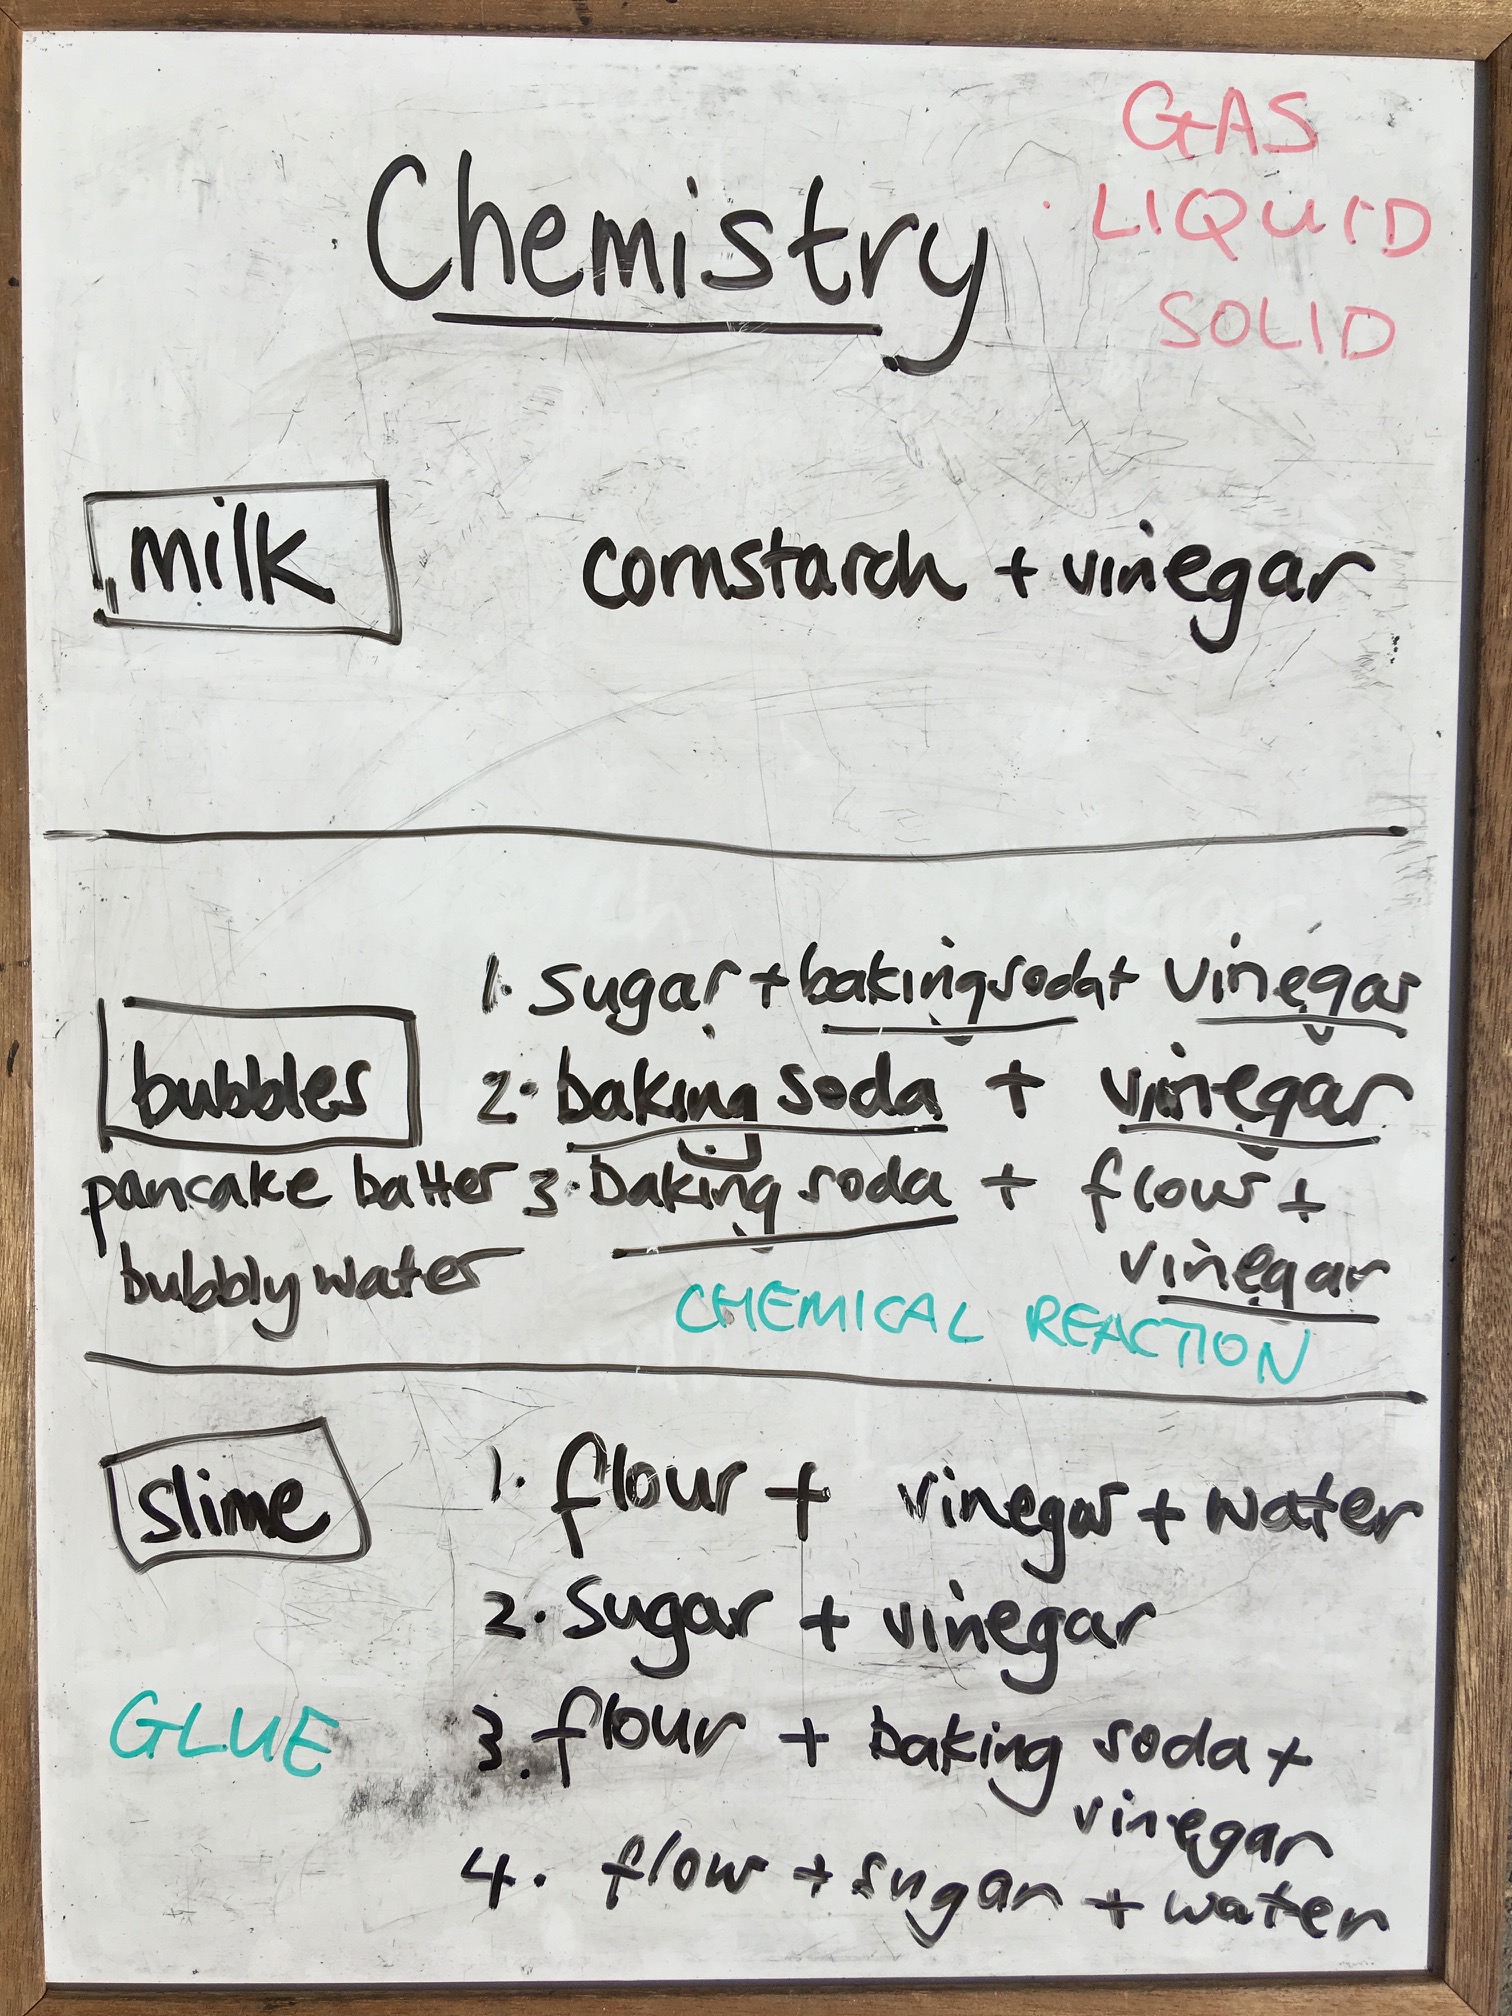 GAS
LIQUID
SOLID
Chemistry
milk
cornstarch + vinegar
1. sugar + baking soda + vinegar
bubbles
2. baking soda + vinegar
pancake batter
3. baking soda + flour +
vinegar
bubbly water
CHEMICAL REACTION
slime
1. flour + vinegar + water
2. sugar + vinegar
GLUE
3. flour + baking soda +
vinegar
4. flour + sugar + water